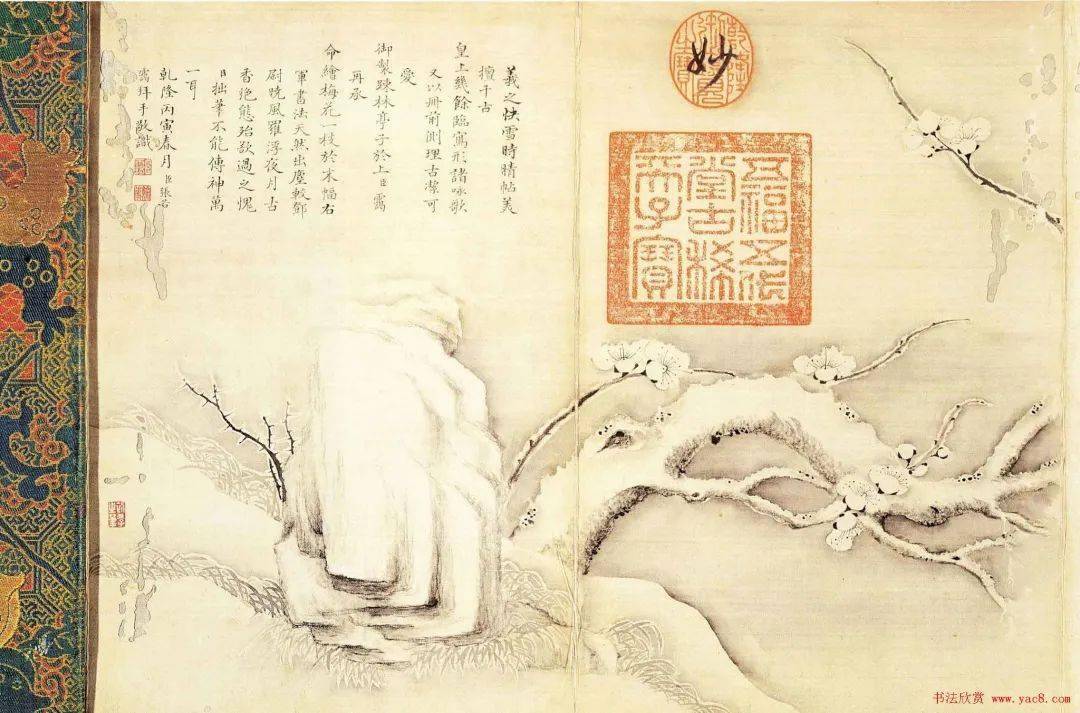 羲之快雪時晴帖美
擅千古
皇上幾餘臨寫形諸咏歌
又以冊前側理古潔可
愛
御製疎林亭子於上臣靄
再承
命繪梅花一枝於末幅右
軍書法天然出塵較鄧
尉晚風羅浮夜月古
香艳態殆欲過之愧
臣拙筆不能傳神萬
一耳
乾隆丙寅春月臣張若
靄拜手敬識
妙
五福五代
堂古稀
天子寶
书法欣赏 www.yac8.com